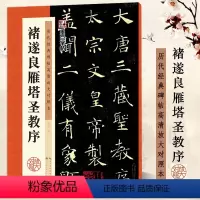 褚遂良雁塔圣教序
历代经典碑帖高清放大对照本
大唐三藏聖教序
太宗文皇帝製
蓋聞二儀有象
褚遂良雁塔圣教序